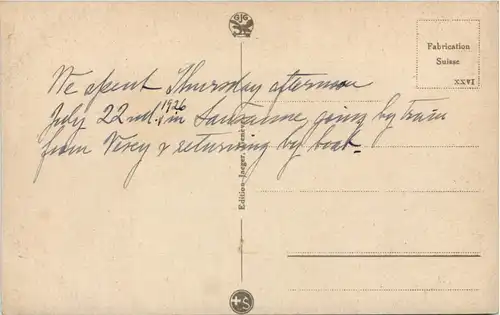 GJG
Fabrication
Suisse
XXVI
We spent Thursday afternoon
July 22nd. 1926 in Lausanne, going by train
from Vevey & returning by boat.
Edition Jaeger, Genève
S